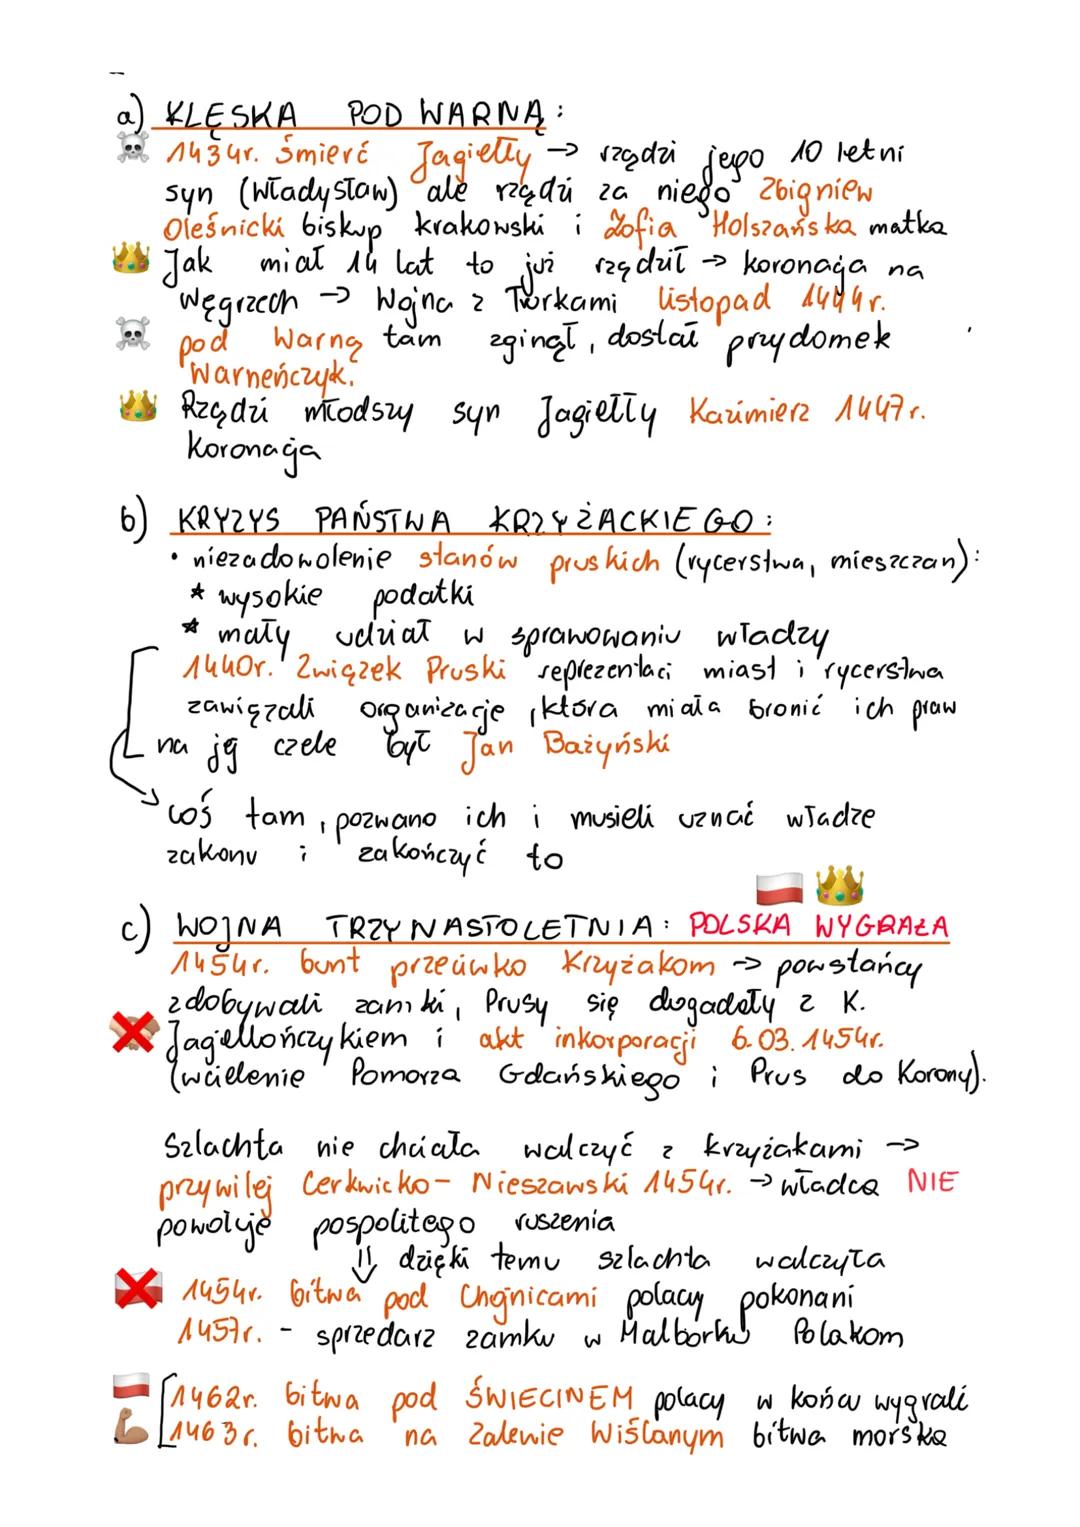 a) KLĘSKA POD WARNĄ:
1434r. śmierć Jagiełły → rządzi jego 10 letni
syn (Władysław) ale rządzi za niego Zbigniew
Oleśnicki biskup krakowski i Zofia Holszańska matka
Jak miał 14 lat to już rządził → koronacja na
węgrzech → Wojna z Turkami listopad 1444r.
pod Warną tam zginął, dostał przydomek
Warneńczyk.
Rządzi młodszy syn Jagiełły Kazimierz 1447r.
koronacja
b) KRYZYS PAŃSTWA KRZYŻACKIEGO:
• niezadowolenie stanów pruskich (rycerstwa, mieszczan):
* wysokie podatki
* mały udział w sprawowaniu władzy
1440r. Związek Pruski reprezentaci miast i rycerstwa
zawiązali organizacje, która miała bronić ich praw
na jej czele był Jan Bażyński
coś tam, pozwano ich i musieli uznać władze
zakonu i zakończyć to
c) WOJNA TRZYNASTOLETNIA: POLSKA WYGRAŁA
1454r. bunt przeciwko Krzyżakom → powstańcy
zdobywali zamki, Prusy się dogadały z K.
Jagiellończykiem i akt inkorporacji 6.03.1454r.
(wcielenie Pomorza Gdańskiego i Prus do Korony).
Szlachta nie chciała walczyć z krzyżakami →
przywilej Cerkwicko-Nieszawski 1454r. → władca NIE
powołuje pospolitego ruszenia
⇓ dzięki temu szlachta walczyła
1454r. bitwa pod Chojnicami polacy pokonani
1457r. - sprzedarz zamku w Malborku Polakom
1462r. bitwa pod ŚWIECINEM polacy w końcu wygrali
1463r. bitwa na Zalewie Wiślanym bitwa morska